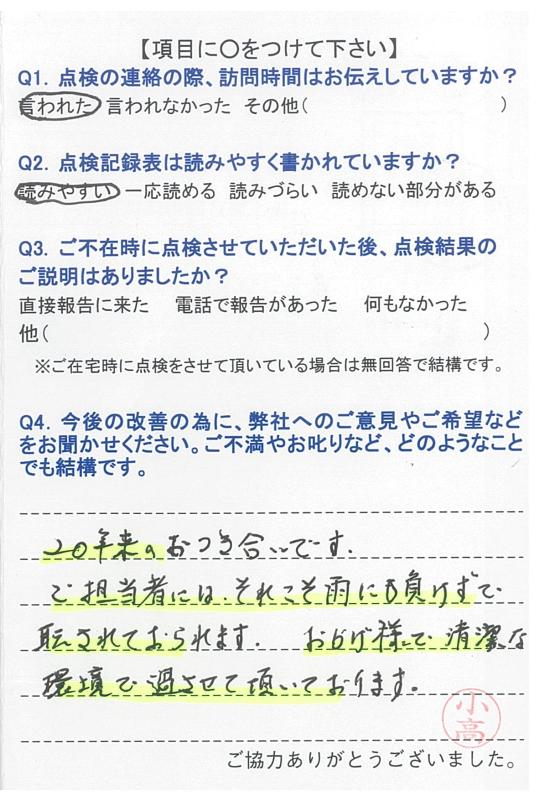 【項目に〇をつけて下さい】
Q1. 点検の連絡の際、訪問時間はお伝えしていますか？
言われた 言われなかった その他( )
Q2. 点検記録表は読みやすく書かれていますか？
読みやすい 一応読める 読みづらい 読めない部分がある
Q3. ご不在時に点検させていただいた後、点検結果の
ご説明はありましたか？
直接報告に来た 電話で報告があった 何もなかった
他( )
※ご在宅時に点検をさせて頂いている場合は無回答で結構です。
Q4. 今後の改善の為に、弊社へのご意見やご希望など
をお聞かせください。ご不満やお叱りなど、どのようなこと
でも結構です。
20年来のおつき合いです.
ご担当者には、それこそ雨にも負けずで
されておられます. おかげ様で清潔な
環境で過させて頂いております。
小高
ご協力ありがとうございました。